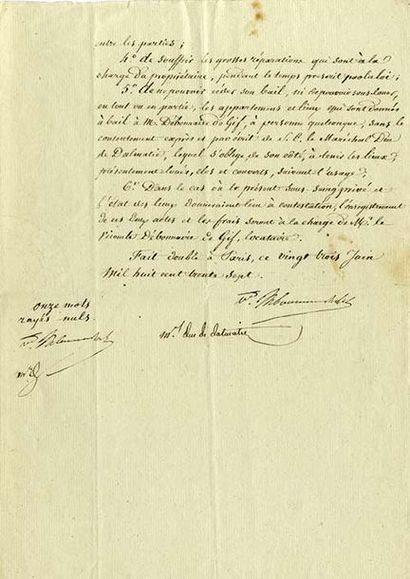 entre les parties;
4° de souffrir les grosses réparations qui sont à la
charge du propriétaire, pendant le temps prescrit par la loi;
5° de ne pouvoir céder son bail, ni de pouvoir sous louer,
en tout ou en partie, les appartemens et lieux qui sont donnés
à bail à M. Débonnaire de Gif, à personne quelconque; sans le
consentement exprès et par écrit de S. E. le Maréchal Duc
de Dalmatie, lequel s'oblige de son côté, à tenir les lieux
présentement loués, clos et couverts, suivant l'usage;
6° Dans le cas où le présent sous seing privé et
l'état des lieux donneraient lieu à contestation, l'enregistrement
de ces deux actes et les frais seront à la charge de M. le
Vicomte Débonnaire de Gif, locataire.
Fait double à Paris, ce vingt trois Juin
Mil huit cent trente sept.
onze mots
rayés nuls.
M.al Duc de Dalmatie